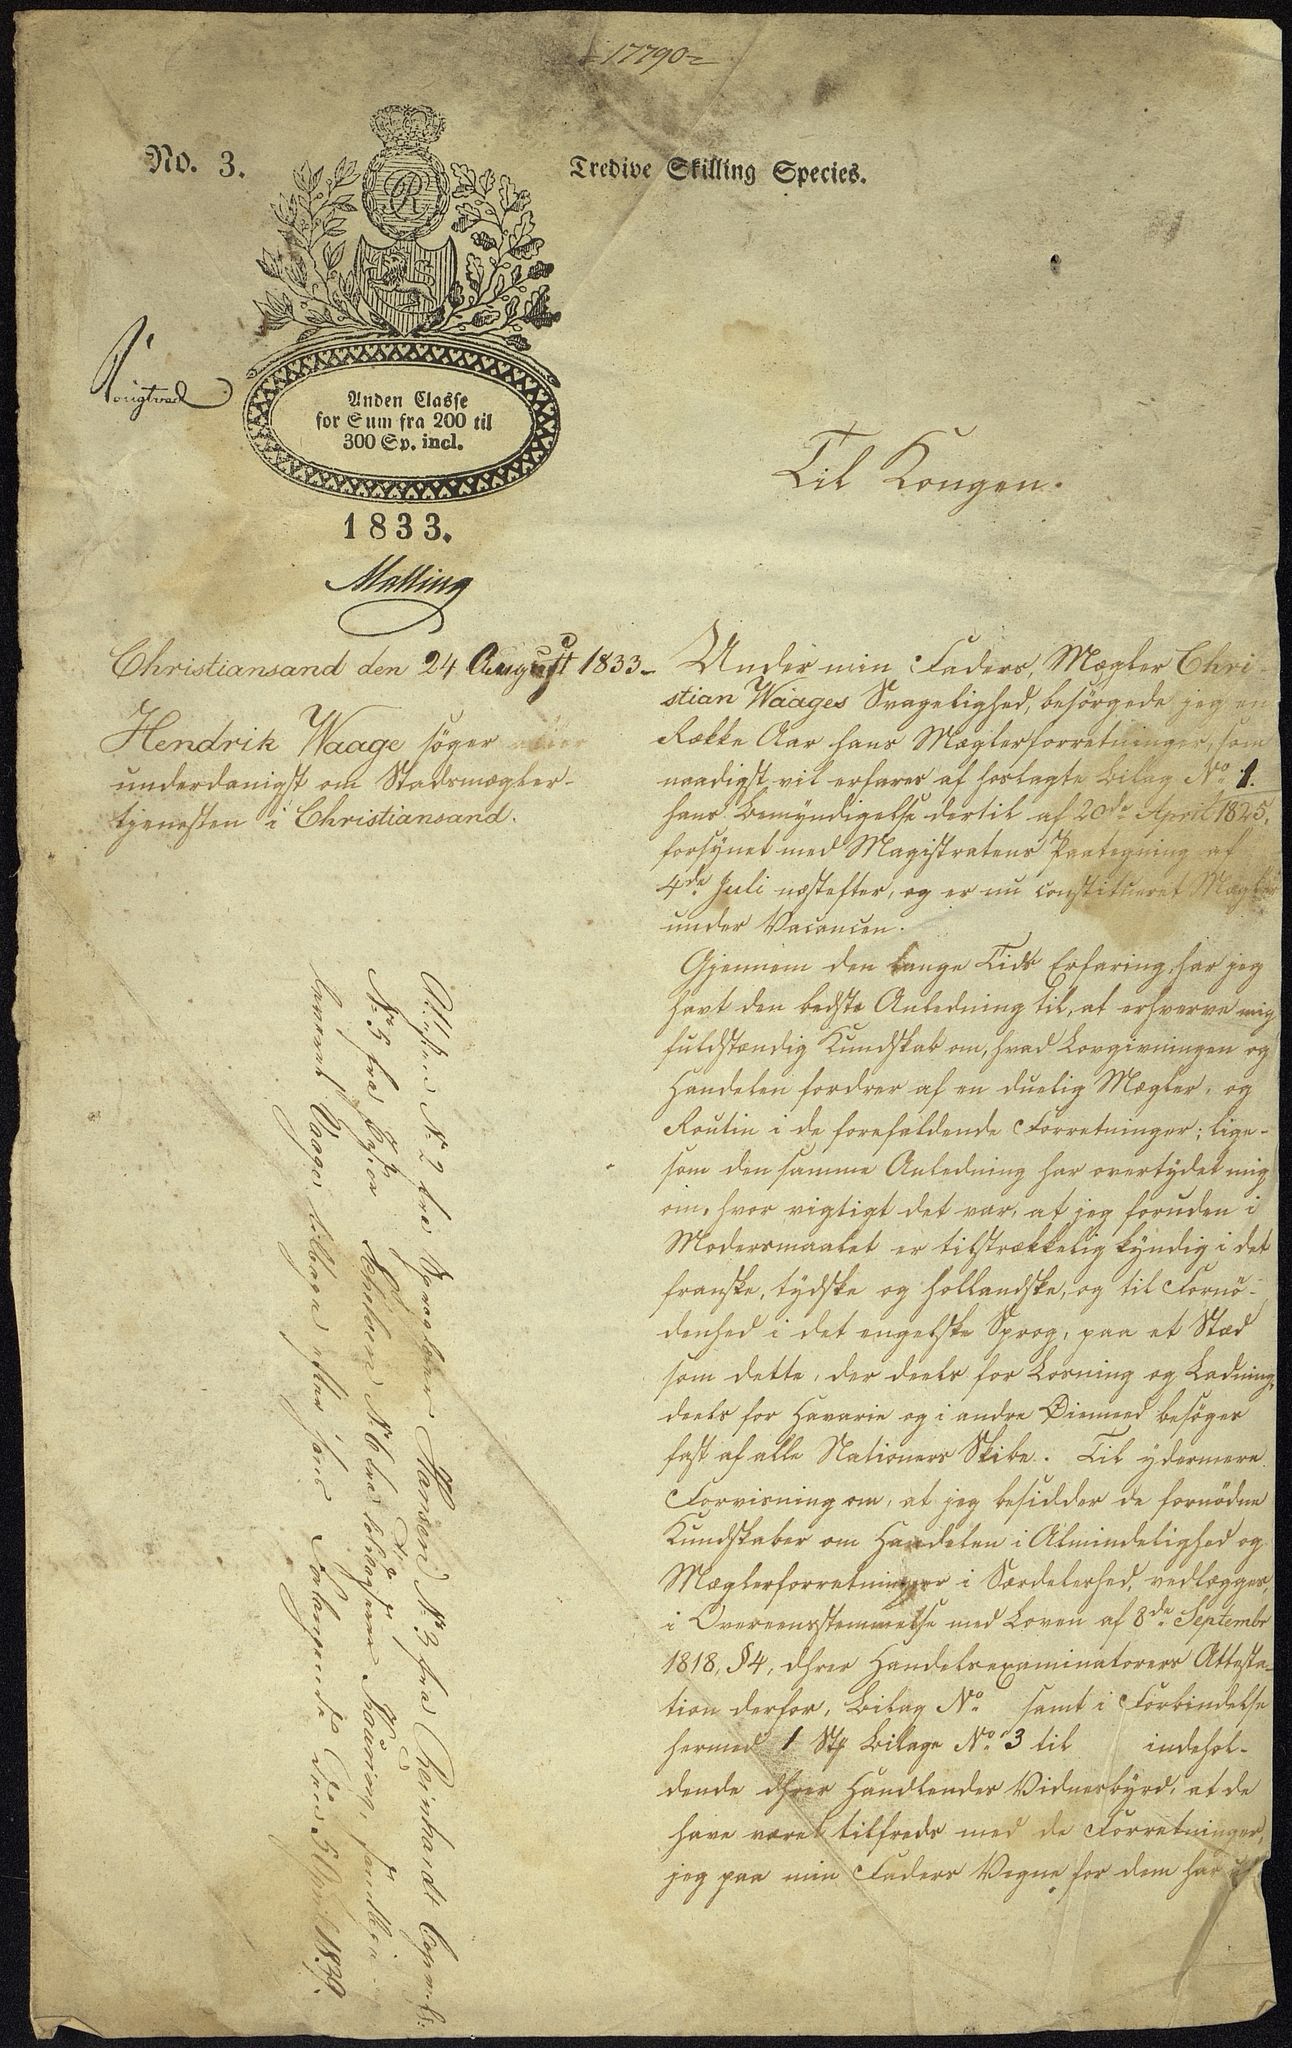 17790
No. 3.
Tredive Skilling Species.
R
Anden Classe
for Sum fra 200 til
300 Sp. incl.
1833.
Malling
Til Kongen.
Christiansand den 24 August 1833
Hendrik Waage søger
underdanigst om Stadsmægler-
tjenesten i Christiansand.
Under min Faders, Mægler Chri-
stian Waages Svagelighed, besörgede jeg en
Række Aar hans Mæglerforretninger, som
naadigst vil erfares af hoslagte Bilag No 1.
hans Bemyndigelse dertil af 20de April 1825,
forsynet med Magistratens Paategning af
4de Juli næstefter, og er nu constitueret Mægler
under Vacancen.
Gjennem den lange Tids Erfaring, har jeg
havt den bedste Anledning til, at erhverve mig
fuldstændig Kundskab om, hvad Lovgivningen og
Handelen fordrer af en duelig Mægler, og
Routin i de forefaldende Forretninger; lige-
som den samme Anledning har overtydet mig
om, hvor vigtigt det var, at jeg foruden i
Modersmaalet er tilstrækkelig kyndig i det
franske, tydske og hollandske, og til Fornö-
denhed i det engelske Sprog, paa et Sted
som dette, der deels for Losning og Ladning,
deels for Havarie og i andre Öiemeed besöges
fast af alle Nationers Skibe. Til ydermere
Forvisning om, at jeg besidder de fornödne
Kundskaber om Handelen i Almindelighed og
Mæglerforretninger i Særdeleshed, vedlægges,
i Overeensstemmelse med Loven af 8de Septembr
1818, §4, dhrr Handelsexaminatorers Attesta-
tion derfor, Bilag No samt i Forbindelse
hermed 1 Stk Bilage No 3 til indehol-
dende dhrr Handlendes Vidnesbyrd, at de
have været tilfreds med de Forretninger,
jeg paa min Faders Vegne for dem har
Attester No 2 fra Hansen No 3 fra Reinhardt
No 5 fra No 6 fra
leveret Waage tilbage efter hans Forlangende den